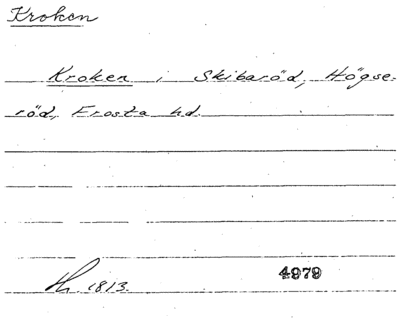 Kroken
Kroken i Skibaröd, Högse-
röd, Frosta hd.
1813.
4979